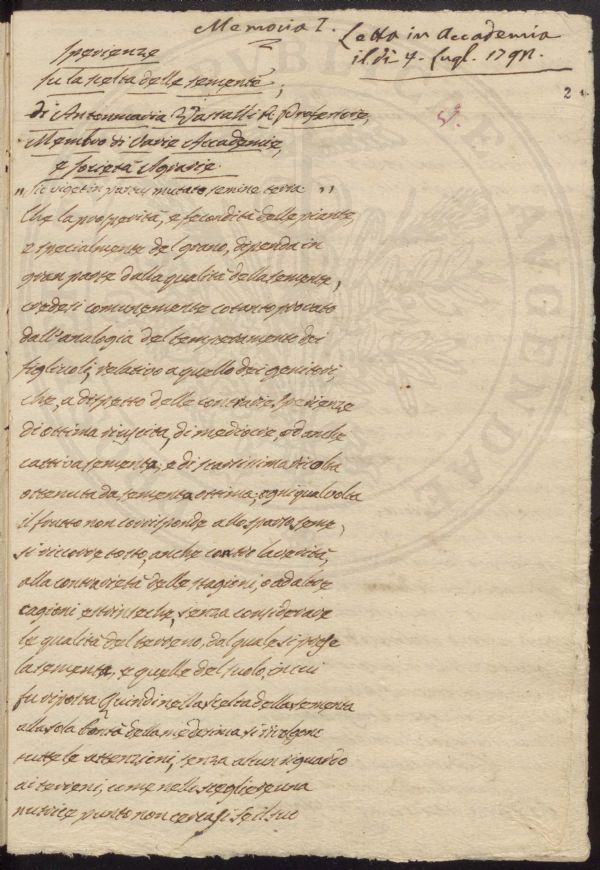 Memoria I.
Letta in Accademia
il dì 4. Lugl. 1791.
2
Sperienze
su la scelta delle sementi;
di Antonmaria Vassalli R. Professore,
Membro di Varie Accademie,
e Società Agrarie.
" Sic viget in partu mutato semine terra "
Che la prosperità, e fecondità delle piante,
e specialmente del grano, dipenda in
gran parte dalla qualità della semente,
credesi comunemente cotanto provato
dall'analogia del temperamento dei
figliuoli, relativo a quello dei genitori,
che, a dispetto delle contrarie sperienze
di ottima riuscita, di mediocre, ed anche
cattiva sementa, e di scarsissima ricolta
ottenuta da sementa ottima; ogniqualvolta
il frutto non corrisponde allo sparso seme,
si ricorre tosto, anche contro la verità,
alla contrarietà delle stagioni, o ad altre
cagioni estrinseche, senza considerare
le qualità del terreno, dal quale si prese
la sementa, e quelle del suolo, in cui
fu riposta. Quindi nella scelta della sementa
alla sola bontà della medesima si rivolgono
tutte le attenzioni, senza alcun riguardo
ai terreni, come nello scegliere una
nutrice punto non cercasi se il suo